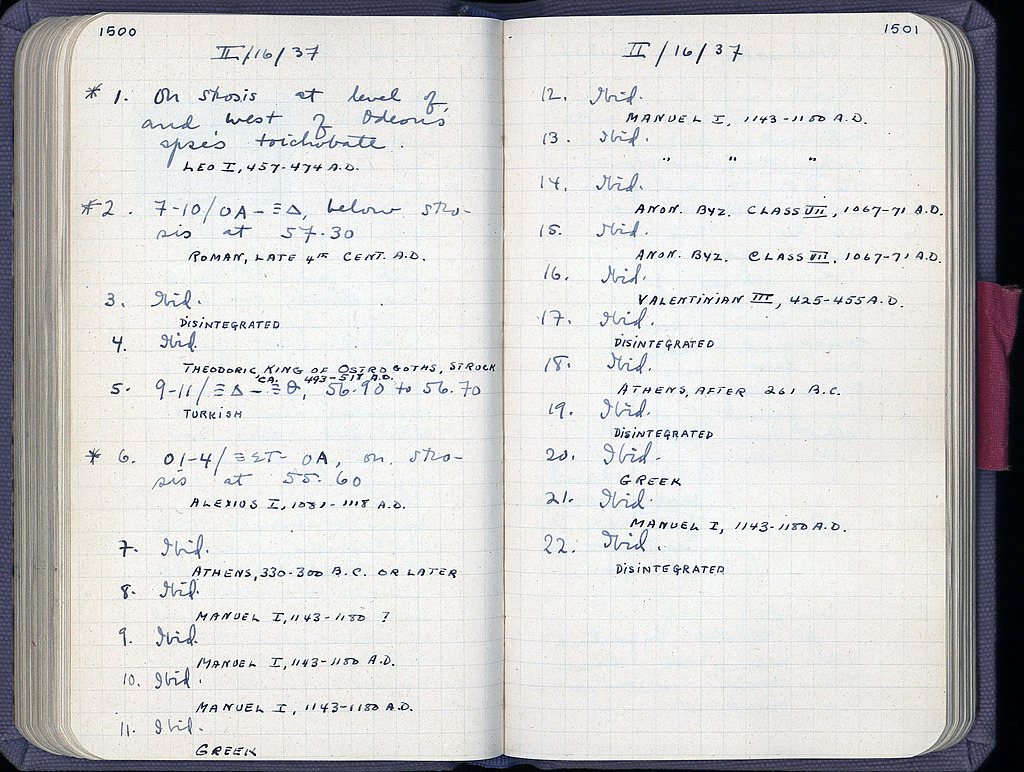 1500
II/16/37
* 1. On strosis at level of
and west of Odeon's
apse's toichobate.
LEO I, 457-474 A.D.
* 2. 7-10/ΟΑ-ΞΔ, below stro-
sis at 57.30
ROMAN, LATE 4TH CENT. A.D.
3. Ibid.
DISINTEGRATED
4. Ibid.
THEODORIC, KING OF OSTROGOTHS, STRUCK
CA. 493-518 A.D.
5. 9-11/ΞΔ-ΞΘ, 56.90 to 56.70
TURKISH
* 6. 01-4/ΞΣΤ-ΟΑ, on stro-
sis at 55.60
ALEXIUS I, 1081-1118 A.D.
7. Ibid.
ATHENS, 330-300 B.C. OR LATER
8. Ibid.
MANUEL I, 1143-1180 ?
9. Ibid.
MANUEL I, 1143-1180 A.D.
10. Ibid.
MANUEL I, 1143-1180 A.D.
11. Ibid.
GREEK
1501
II/16/37
12. Ibid.
MANUEL I, 1143-1180 A.D.
13. Ibid.
" " "
14. Ibid.
ANON. BYZ. CLASS VII, 1067-71 A.D.
15. Ibid.
ANON. BYZ. CLASS VII, 1067-71 A.D.
16. Ibid.
VALENTINIAN III, 425-455 A.D.
17. Ibid.
DISINTEGRATED
18. Ibid.
ATHENS, AFTER 261 B.C.
19. Ibid.
DISINTEGRATED
20. Ibid.
GREEK
21. Ibid.
MANUEL I, 1143-1180 A.D.
22. Ibid.
DISINTEGRATED